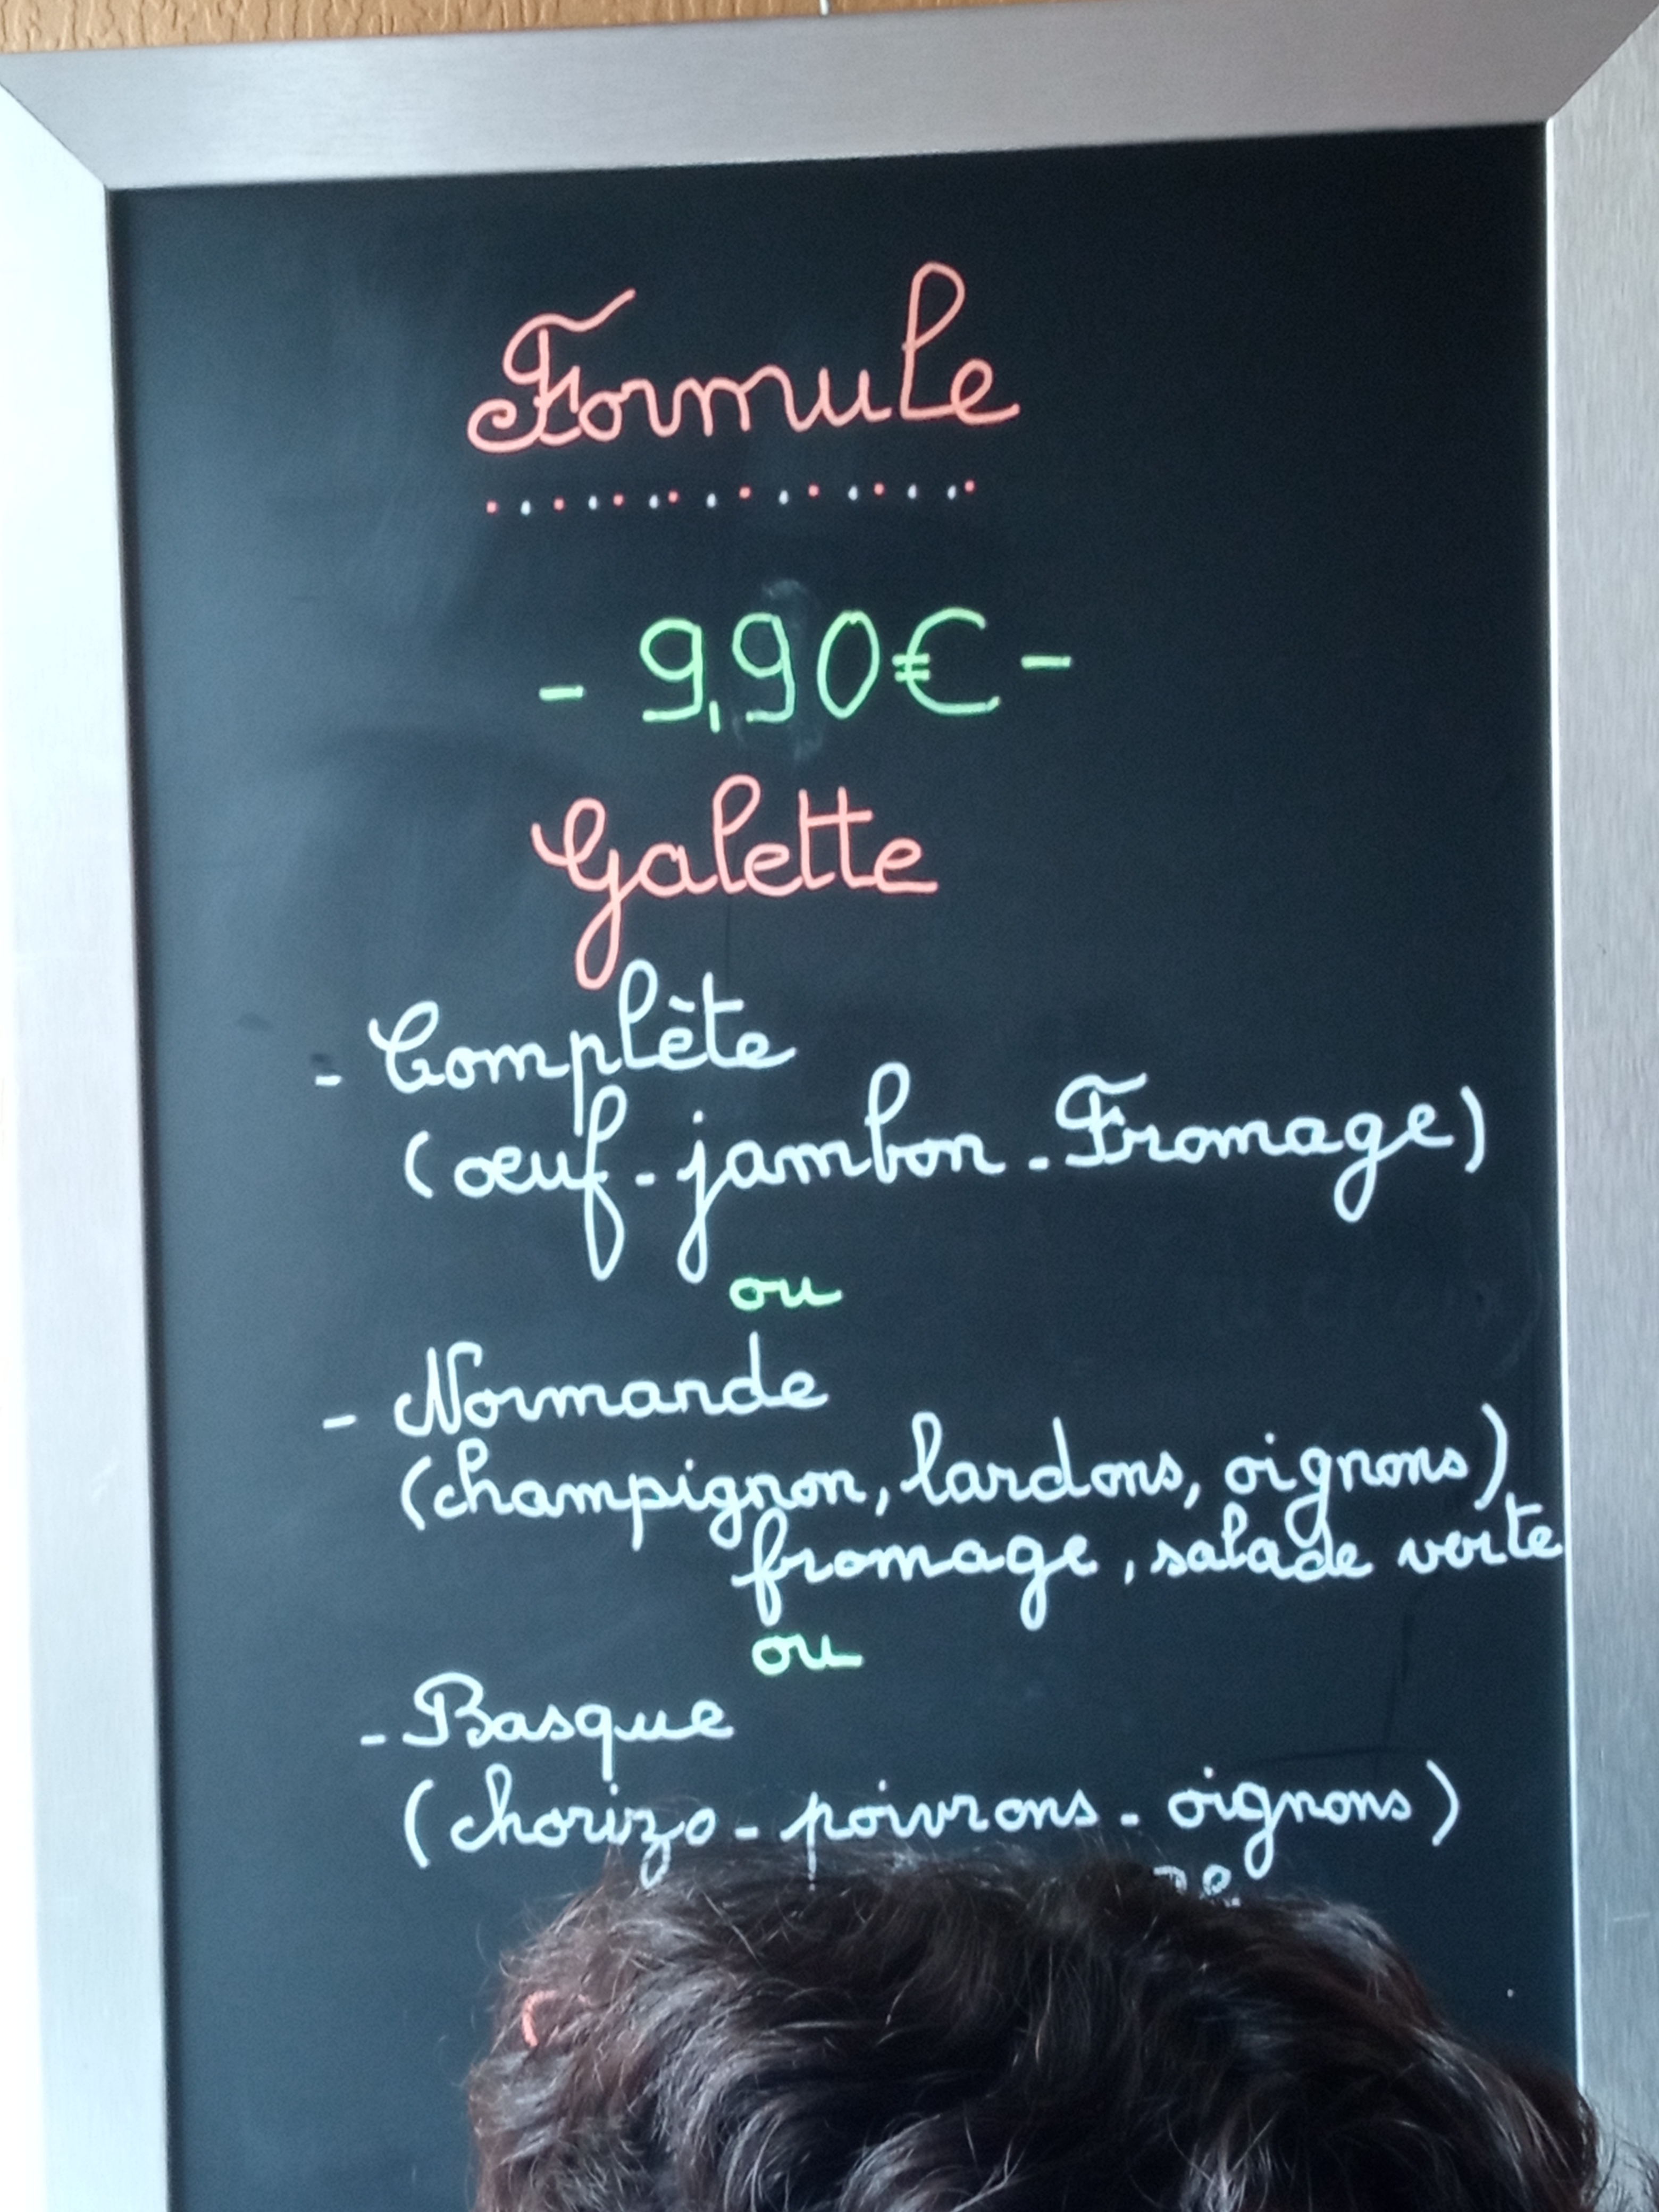 Formule
- 9,90€ -
Galette
- Complète
(œuf - jambon - Fromage)
ou
- Normande
(champignon, lardons, oignons)
fromage, salade verte
ou
- Basque
(chorizo - poivrons - oignons)